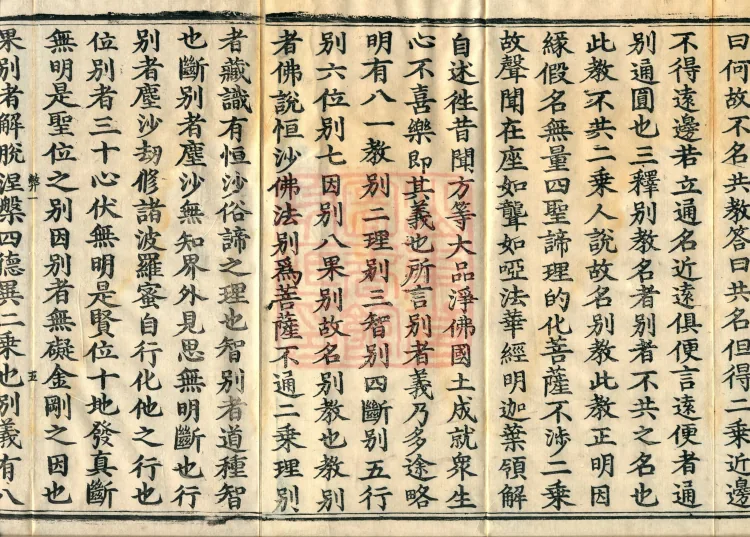 曰何故不名共教答曰共名但得二乘近邊
不得遠邊若立通名近遠俱便言遠便者通
別通圓也三釋別教名者別者不共之名也
此教不共二乘人說故名別教此教正明因
緣假名無量四聖諦理的化菩薩不涉二乘
故聲聞在座如聾如啞法華經明迦葉領解
自述徃昔聞方等大品淨佛國土成就衆生
心不喜樂即其義也所言別者義乃多途略
明有八一教別二理別三智別四斷別五行
別六位別七因別八果別故名別教也教別
者佛說恒沙佛法別爲菩薩不通二乘理別
者藏識有恒沙俗諦之理也智別者道種智
也斷別者塵沙無知界外見思無明斷也行
別者塵沙劫修諸波羅蜜自行化他之行也
位別者三十心伏無明是賢位十地發真斷
無明是聖位之別因別者無礙金剛之因也
五
果別者解脫涅槃四德異二乘也別義有八